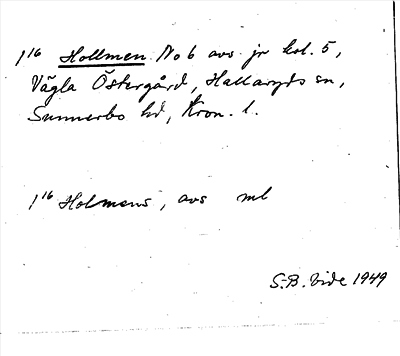 1¹⁶ Hollmen No 6 avs. jr kol. 5,
Vägla Östergård, Hallaryds sn,
Sunnerbo hd, Kron. l.
1¹⁶ Holmens, avs ml
S.-B. Vide 1949